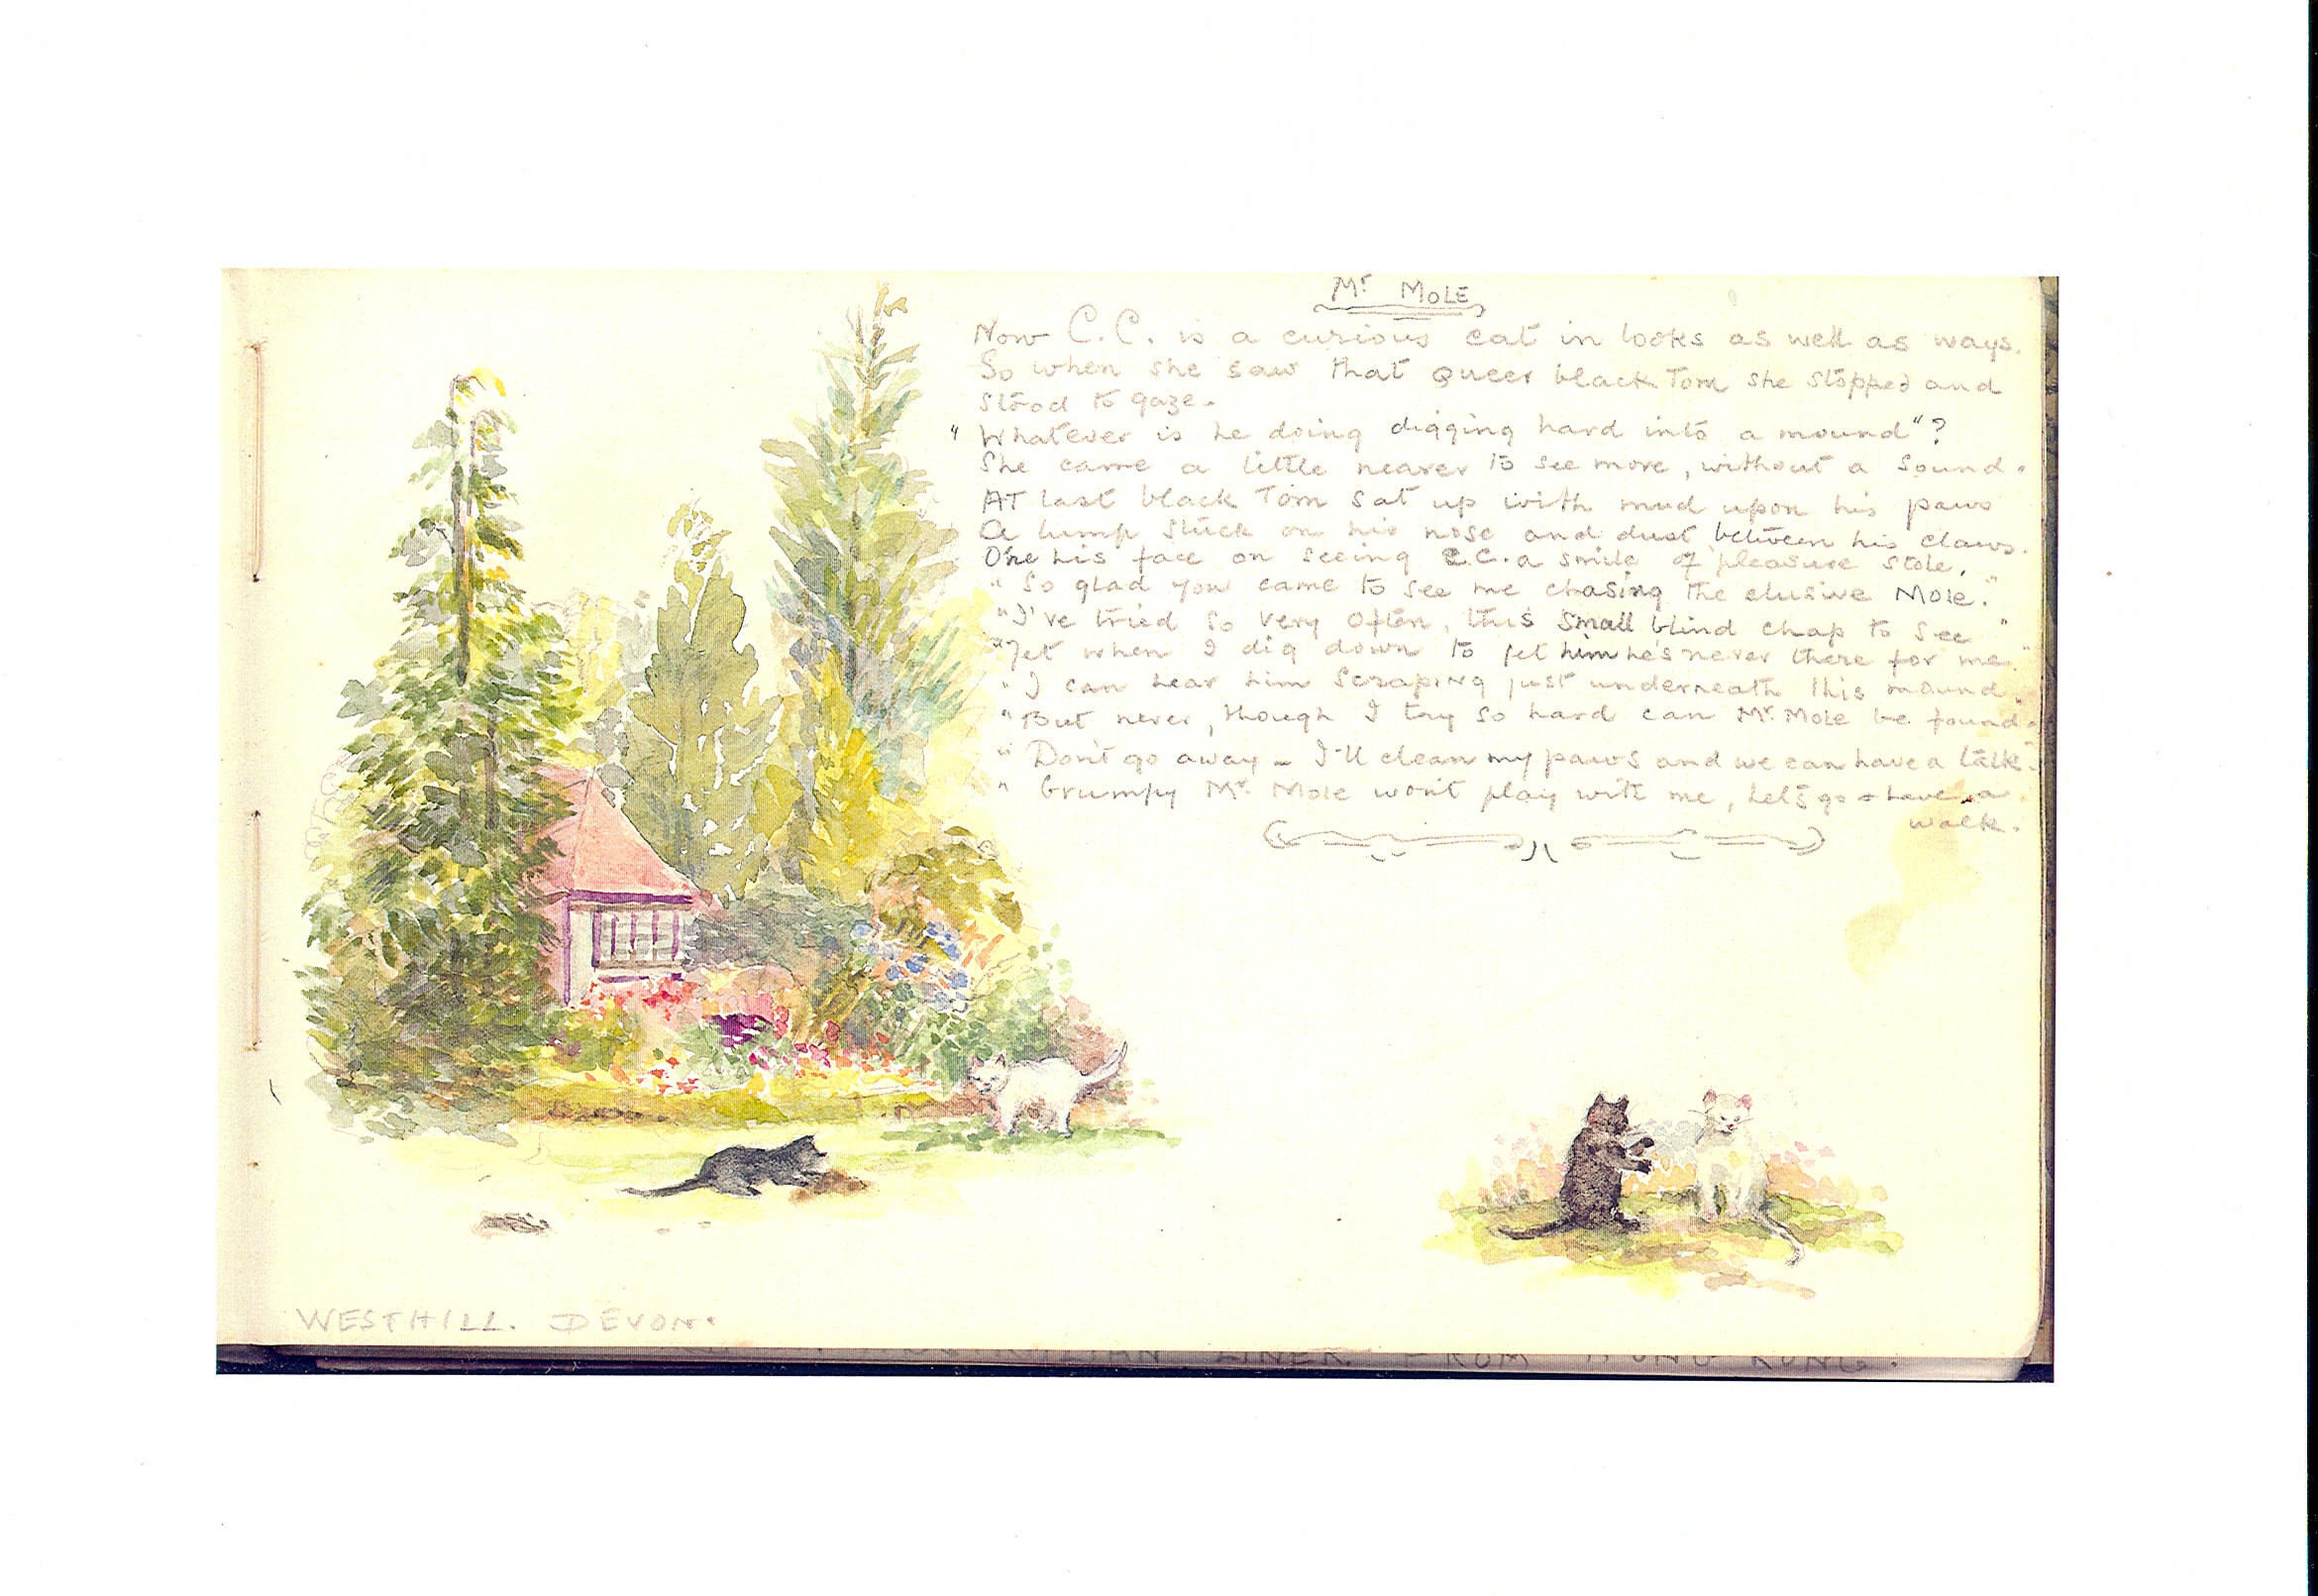 Mr MOLE
Now C.C. is a curious cat in looks as well as ways.
So when she saw that queer black Tom she stopped and
stood to gaze.
"Whatever is he doing digging hard into a mound"?
She came a little nearer to see more, without a sound.
AT last black Tom sat up with mud upon his paws
A lump stuck on his nose and dust between his claws.
One his face on seeing C.C. a smile of pleasure stole,
"So glad you came to see me chasing the elusive Mole."
"I've tried so very often, this small blind chap to see"
"Yet when I dig down to get him he's never there for me."
"I can hear him scraping just underneath this mound."
"But never, though I try so hard can Mr. Mole be found.
"Don't go away - I'll clean my paws and we can have a talk."
"Grumpy Mr. Mole won't play with me, let's go & have a
walk.
WESTHILL. DEVON.
LINER. FROM HONG KONG.